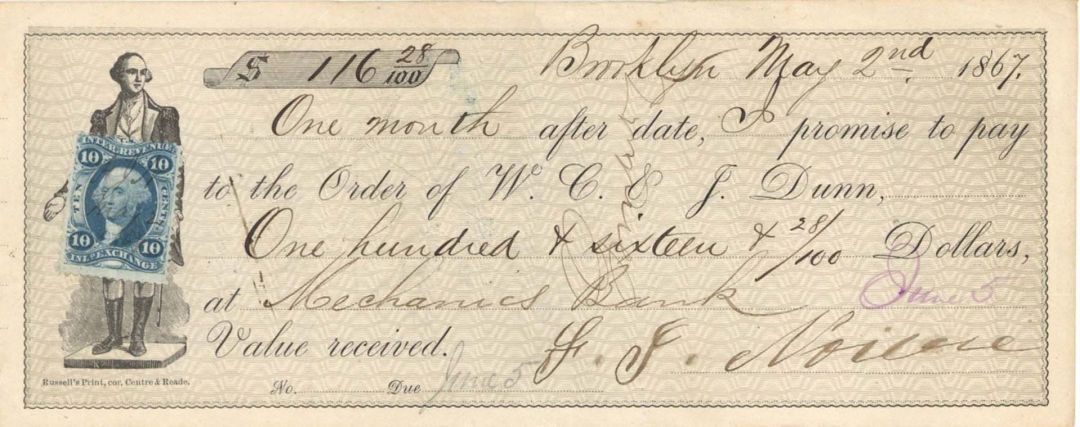 $ 116 28/100 Brooklyn May 2nd 1867.
One month after date, I promise to pay
to the Order of W. C. & J. Dunn,
One hundred & sixteen & 28/100 Dollars,
at Mechanics Bank June 5
Value received.
No. Due June 5
INTER. REVENUE
10 10
TEN CENTS
10 10
INL. EXCHANGE
Russell's Print, cor. Centre & Reade.